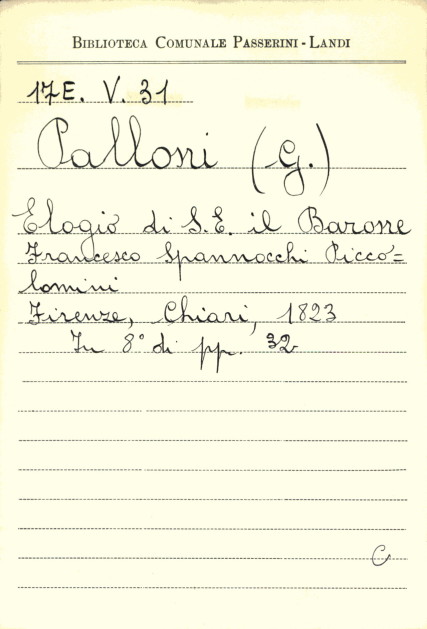 BIBLIOTECA COMUNALE PASSERINI - LANDI
17E. V. 31
Palloni (G.)
Elogio di S.E. il Barone
Francesco Spannocchi Picco=
lomini
Firenze, Chiari, 1823
In 8° di pp. 32
C